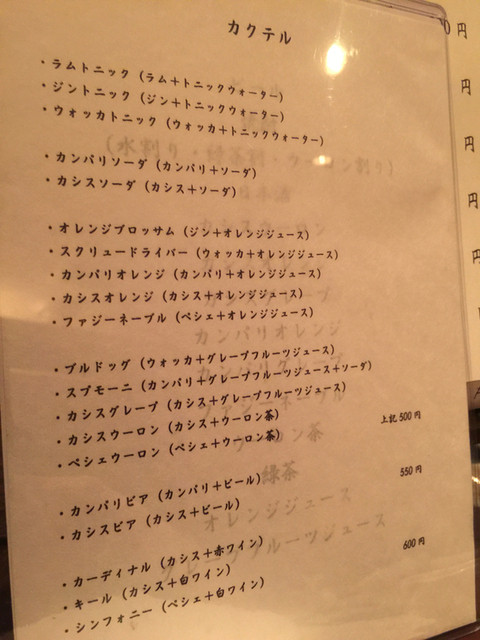 カクテル
・ラムトニック（ラム＋トニックウォーター）
・ジントニック（ジン＋トニックウォーター）
・ウォッカトニック（ウォッカ＋トニックウォーター）
・カンパリソーダ（カンパリ＋ソーダ）
・カシスソーダ（カシス＋ソーダ）
・オレンジブロッサム（ジン＋オレンジジュース）
・スクリュードライバー（ウォッカ＋オレンジジュース）
・カンパリオレンジ（カンパリ＋オレンジジュース）
・カシスオレンジ（カシス＋オレンジジュース）
・ファジーネーブル（ペシェ＋オレンジジュース）
・ブルドッグ（ウォッカ＋グレープフルーツジュース）
・スプモーニ（カンパリ＋グレープフルーツジュース＋ソーダ）
・カシスグレープ（カシス＋グレープフルーツジュース）
・カシスウーロン（カシス＋ウーロン茶）
・ペシェウーロン（ペシェ＋ウーロン茶）
上記500円
・カンパリビア（カンパリ＋ビール）
・カシスビア（カシス＋ビール）
550円
・カーディナル（カシス＋赤ワイン）
・キール（カシス＋白ワイン）
・シンフォニー（ペシェ＋白ワイン）
600円
0円
円
円
円
円
円